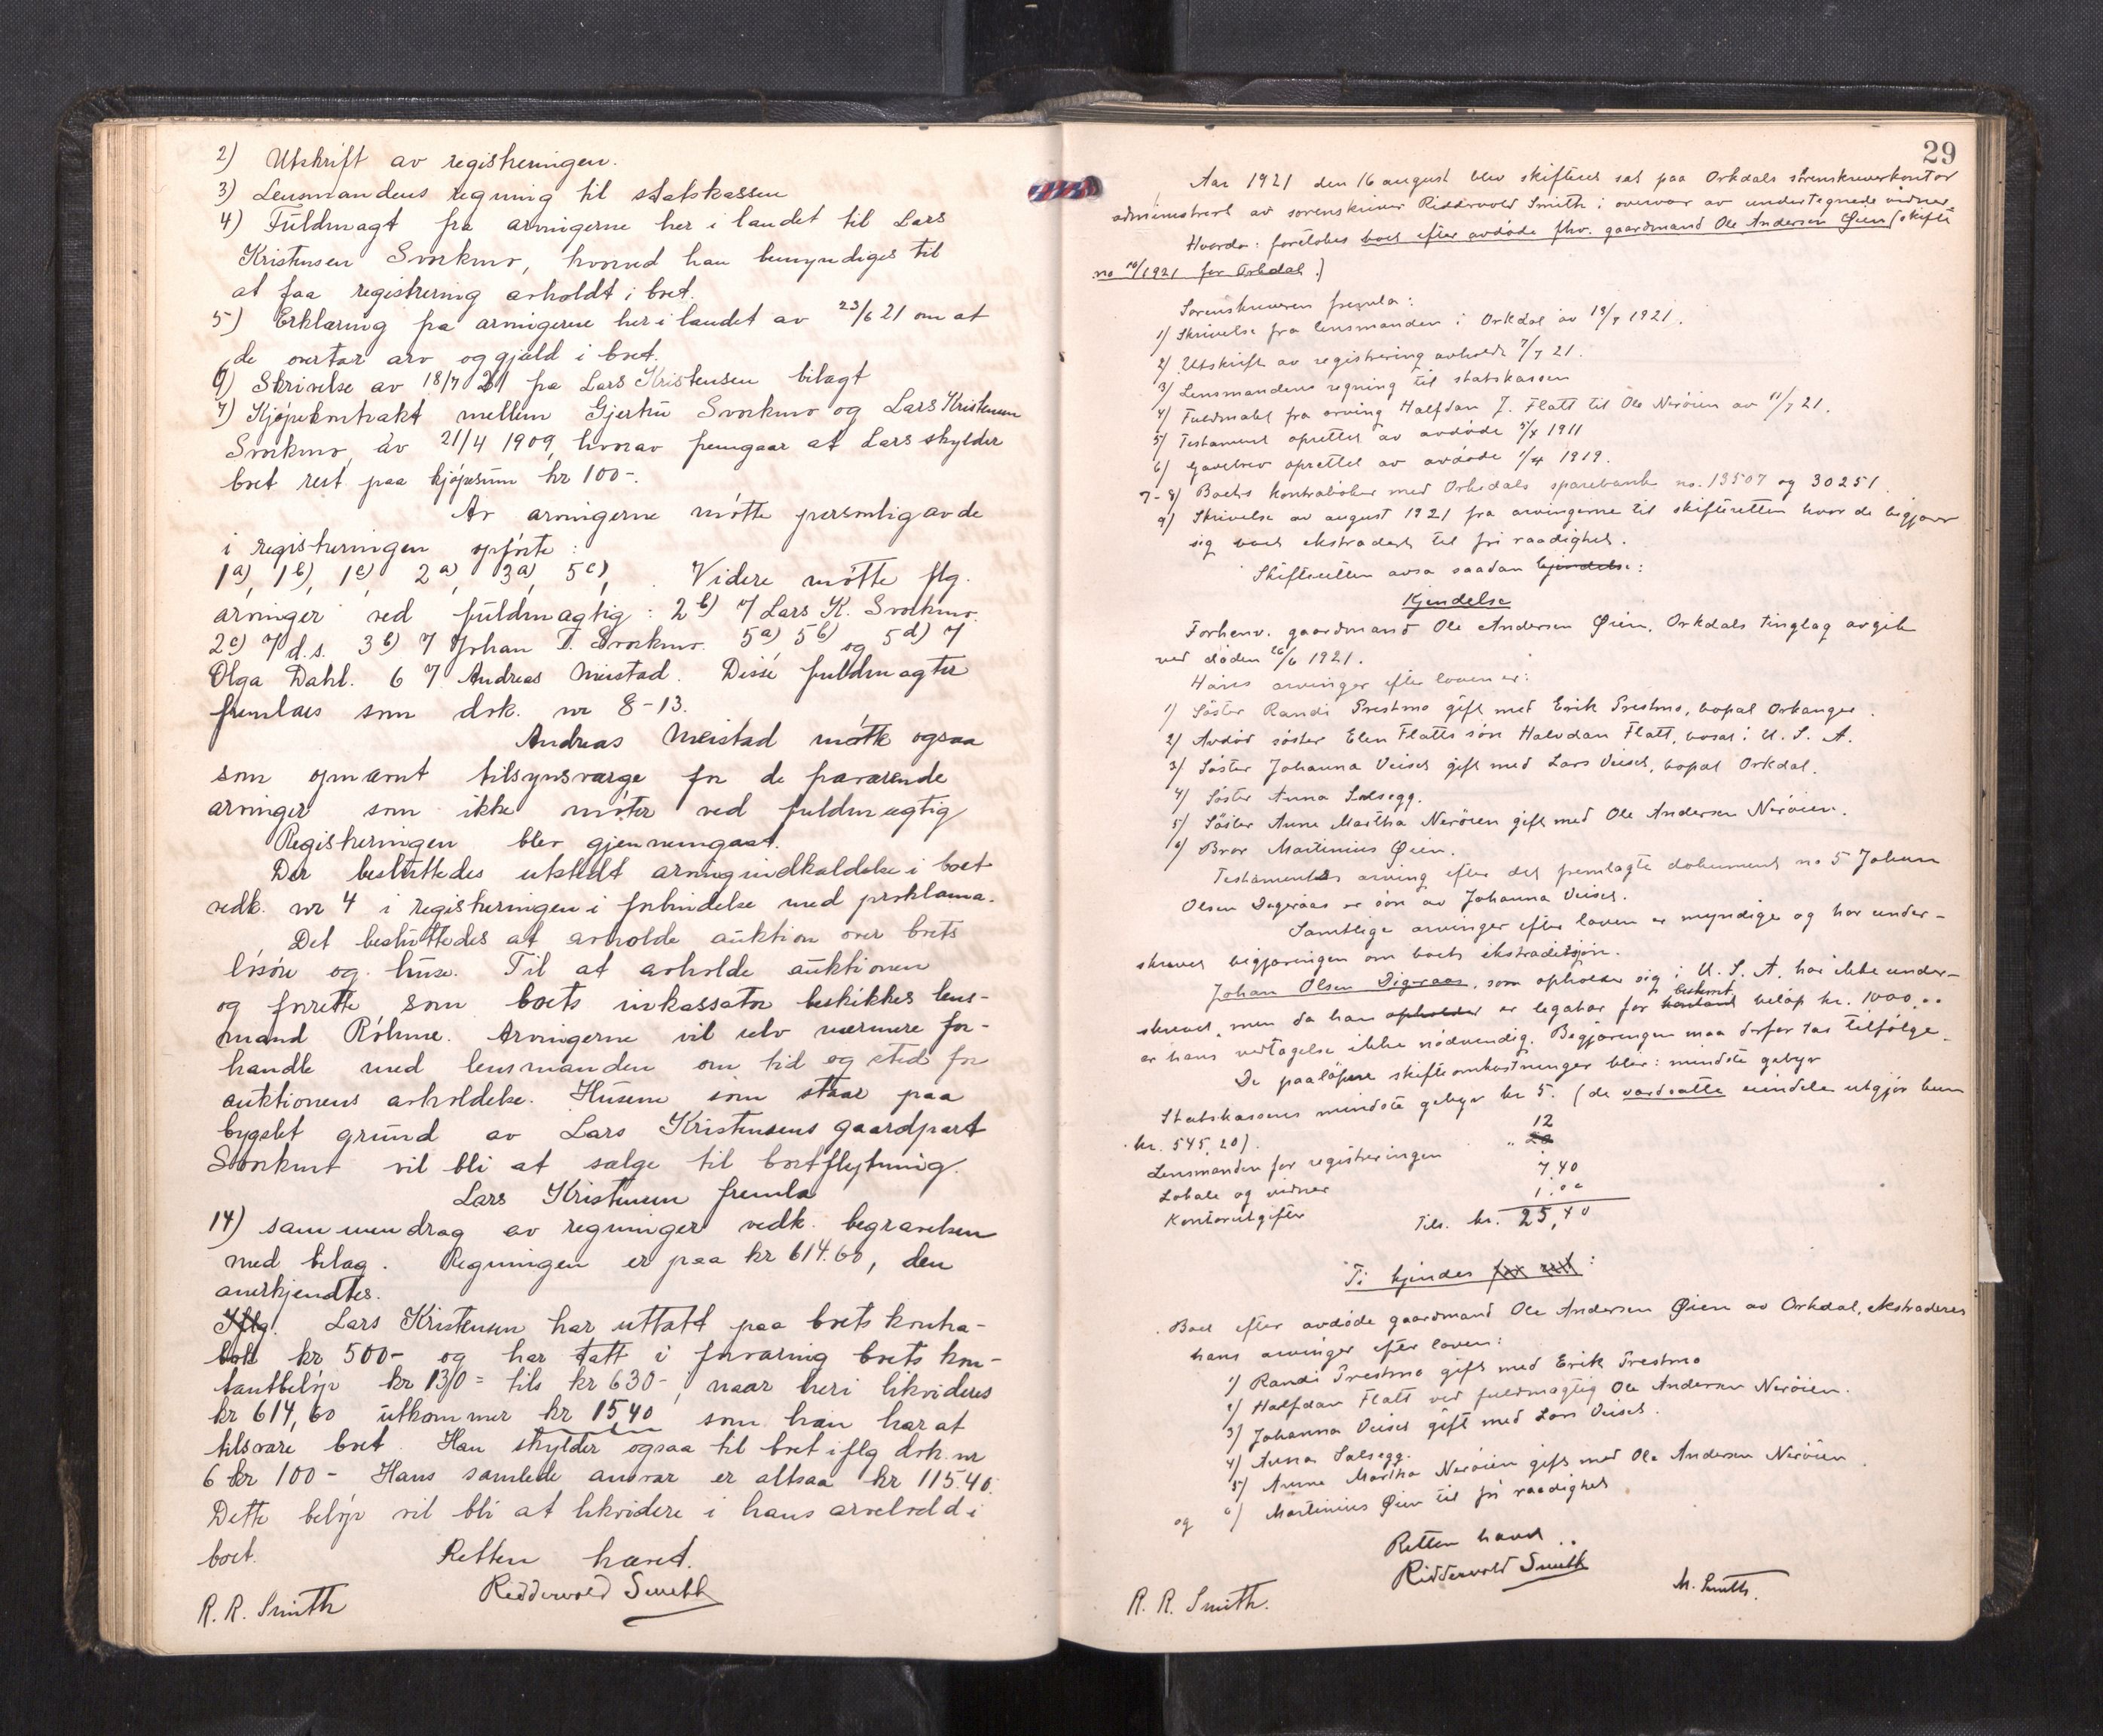 2) Utskrift av registreringen.
3) Lensmandens regning til statskassen
4) Fuldmagt fra arvingerne her i landet til Lars
Kristensen Svorkmo, hvorved han bemyndiges til
at faa registrering avholdt i boet.
5) Erklæring fra arvingerne her i landet av 23/6 21 om at
de overtar arv og gjæld i boet.
6) Skrivelse av 18/7 21 fra Lars Kristensen bilagt
7) Kjøpekontrakt mellem Gjertru Svorkmo og Lars Kristensen
Svorkmo, av 21/4 1909, hvorav fremgaar at Lars skylder
boet rest paa kjøpesum kr 100-.
Av arvingerne møtte personlig av de
i registreringen opførte:
1a), 1b), 1c), 2a), 3a), 5c), Videre møtte flg.
arvinger ved fuldmægtig: 2b) v/ Lars K. Svorkmo.
2c) v/ d.s. 3b) v/ Johan T. Svorkmo. 5a), 5b) og 5d) v/
Olga Dahl. 6 v/ Andreas Meistad. Disse fuldmagter
fremlaes som dok. nr 8-13.
Andreas Meistad møtte ogsaa
som opnævnt tilsynsværge for de fraværende
arvinger som ikke møter ved fuldmægtig
Registreringen blev gjennemgaat.
Der besluttedes utstedt arvingindkaldelse i boet
vedk. nr 4 i registreringen i forbindelse med proklama.
Det besluttedes at avholde auktion over boets
løsøre og huse. Til at avholde auktionen
og forrette som boets inkassator beskikkes lens-
mand Röhme. Arvingerne vil selv nærmere for-
handle med lensmanden om tid og sted for
auktionens avholdelse. Husene som staar paa
bygslet grund av Lars Kristensens gaardpart
Svorkmo vil bli at sælge til bortflytning.
Lars Kristensen fremla
14) sammendrag av regninger vedk. begravelsen
med bilag. Regningen er paa kr 614.60, den
anerkjendtes.
Iflg. Lars Kristensen har uttatt paa boets kontra-
bok kr 500- og har tatt i forvaring boets kon-
tantbeløp kr 130 = tils kr 630-, naar heri likvideres
kr 614,60 utkommer kr 15,40 som han har at
tilsvare boet. Han skylder ogsaa til boet iflg dok. nr
6 kr 100- Hans samlede ansvar er altsaa kr 115.40.
Dette beløp vil bli at likvidere i hans arvelodd i
boet. Retten hævet.
Ridderwold Smith
R. R. Smith
29
Aar 1921 den 16 august blev skifteret sat paa Orkdals sorenskriverkontor
administrert av sorenskriver Ridderwold Smith i overvær av undertegnede vidner
Hvorda: foretokes boet efter avdøde fhv. gaardmand Ole Andersen Øien (skifte
no 10/1921 for Orkdal.)
Sorenskriveren fremla:
1) Skrivelse fra lensmanden i Orkdal av 19/7 1921.
2) Utskrift av registrering avholdt 7/7 21.
3) Lensmandens regning til statskassen
4) Fuldmakt fra arving Halfdan J. Flatt til Ole Nerøien av 11/7 21.
5) Testament oprettet av avdøde 5/8 1911
6) Gavebrev oprettet av avdøde 1/4 1919.
7-8) Boets kontrabøker med Orkedals sparebank no. 13507 og 30251.
9) Skrivelse av august 1921 fra arvingerne til skifteretten hvor de begjærer
sig boet ekstradert til fri raadighet.
Skifteretten avsa saadan kjendelse:
Kjendelse
Forhenv. gaardmand Ole Andersen Øien, Orkdals tinglag avgik
ved døden 26/6 1921.
Hans arvinger efter loven er:
1) Søster Randi Prestmo gift met Erik Prestmo, bopal Orkanger.
2) Avdød søster Elen Flatts søn Halvdan Flatt, bosat i U. S. A.
3) Søster Johanna Veiset gift med Lars Veiset, bopal Orkdal.
4) Søster Anna Solsegg.
5) Søster Anne Martha Nerøien gift med Ole Andersen Nerøien.
6) Bror Martinius Øien.
Testamentær arving efter det fremlagte dokument no 5 Johan
Olsen Digeraas er søn av Johanna Veiset.
Samtlige arvinger efter loven er myndige og har under-
skrevet begjæringen om boets ekstradition.
Johan Olsen Digeraas, som opholder sig i U. S. A. har ikke under-
skrevet, men da han opholder er legatar for kontant bestemt beløp kr. 1000,..
er hans vedtagelse ikke nødvendig. Begjæringen maa derfor tas tilfølge.
De paaløpne skifteomkostninger blir: mindste gebyr
Statskassens mindste gebyr kr 5. (de værdsatte eiendele utgjør kun
kr. 545,20).
Lensmanden for registreringen " 20 12
Lokale og vidner 7 40
Kontorutgifter 1.00
Tils. kr. 25,40
Ti kjendes for ret:
Boet efter avdøde gaardmand Ole Andersen Øien av Orkdal, ekstraderes
hans arvinger efter loven:
1) Randi Prestmo gift med Erik Prestmo
2) Halfdan Flatt ved fuldmægtig Ole Andersen Nerøien.
3) Johanna Veiset gift med Lars Veiset.
4) Anna Solsegg.
5) Anne Martha Nerøien gift med Ole Andersen Nerøien.
og 6) Martinius Øien til fri raadighet
Retten hævet
Ridderwold Smith
R. R. Smith. M. Smith.